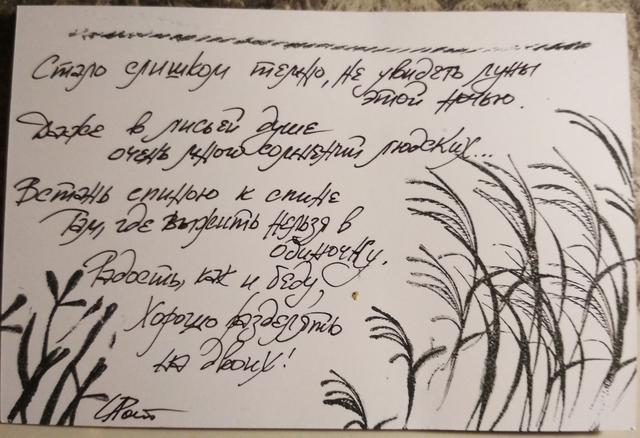 Стало слишком темно, не увидеть луны
этой ночью.
Даже в лисьей душе
очень много сомнений людских...
Встань спиною к спине
Там, где выжить нельзя в
одиночку.
Радость, как и беду,
Хорошо разделять
на двоих!